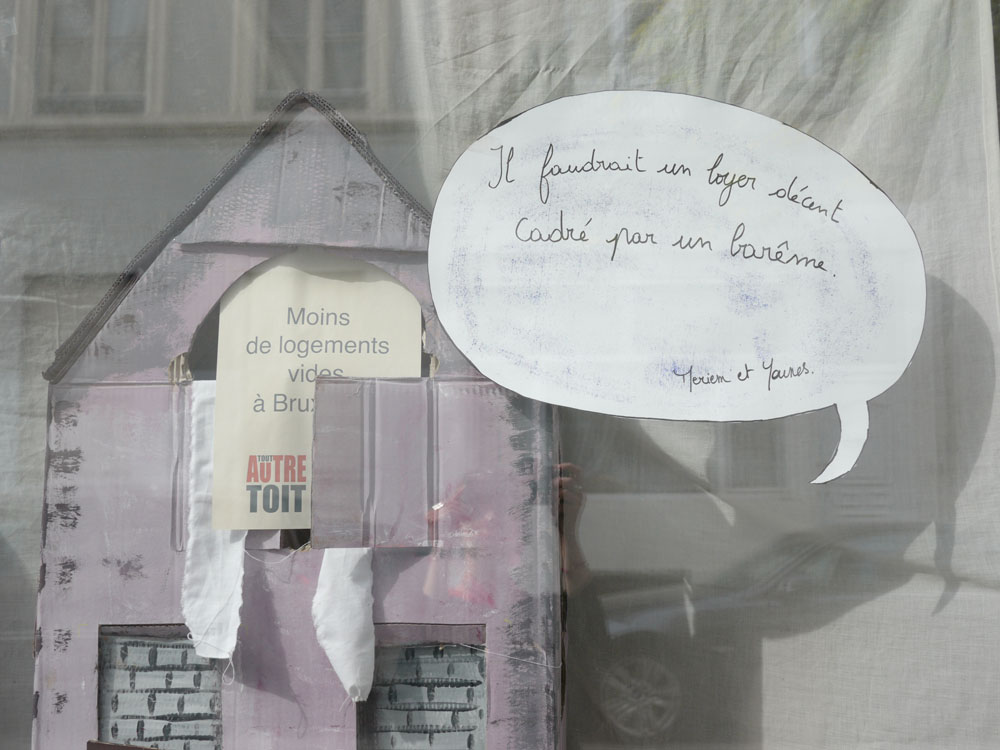 Il faudrait un loyer décent
Cadré par un barême.
Meriem et Younes.
Moins
de logements
vides
à Brux
TOUT
AUTRE
TOIT